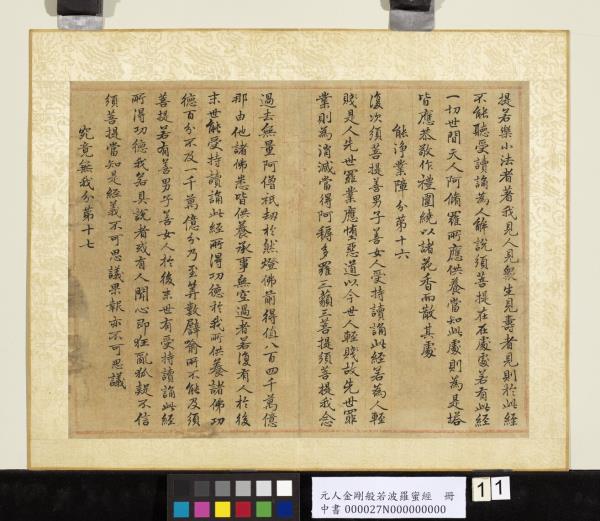 提若樂小法者著我見人見眾生見壽者見則於此經
不能聽受讀誦為人解說須菩提在在處處若有此經
一切世間天人阿脩羅所應供養當知此處則為是塔
皆應恭敬作禮圍繞以諸花香而散其處
能淨業障分第十六
復次須菩提善男子善女人受持讀誦此經若為人輕
賤是人先世罪業應墮惡道以今世人輕賤故先世罪
業則為消滅當得阿耨多羅三藐三菩提須菩提我念
過去無量阿僧祇劫於然燈佛前得值八百四千萬億
那由他諸佛悉皆供養承事無空過者若復有人於後
末世能受持讀誦此經所得功德於我所供養諸佛功
德百分不及一千萬億分乃至筭數譬喻所不能及須
菩提若有善男子善女人於後末世有受持讀誦此經
所得功德我若具說者或有人聞心即狂亂狐疑不信
須菩提當知是經義不可思議果報亦不可思議
究竟無我分第十七
元人金剛般若波羅蜜經 冊
中書 000027N000000000
11